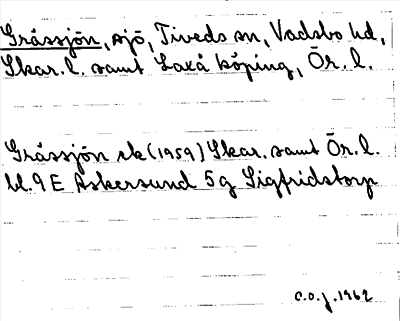 Gråssjön, sjö, Tiveds sn, Vadsbo hd,
Skar. l. samt Laxå köping, Ör. l.
Gråssjön ek (1959) Skar. samt Ör. l.
bl. 9 E Askersund 5 g Sigfridstorp
C.O.J. 1962